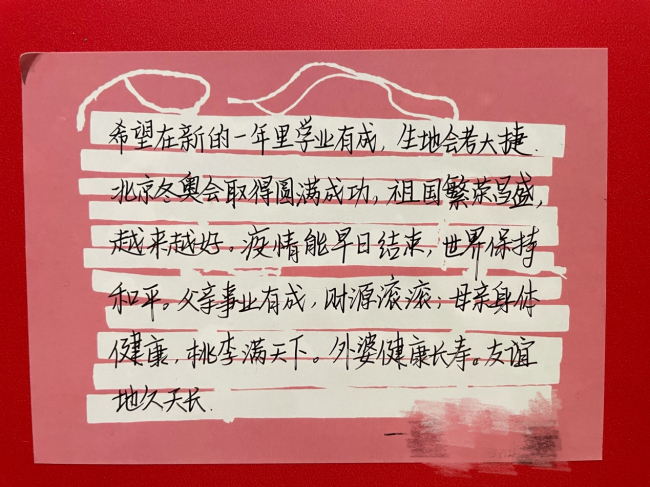 希望在新的一年里学业有成，生地会考大捷.
北京冬奥会取得圆满成功，祖国繁荣昌盛，
越来越好。疫情能早日结束，世界保持
和平。父亲事业有成，财源滚滚；母亲身体
健康，桃李满天下。外婆健康长寿。友谊
地久天长.